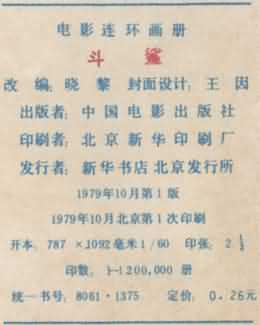 电影连环画册
斗 鲨
改 编:晓 黎 封面设计:王 因
出版者:中国电影出版社
印刷者:北京新华印刷厂
发行者:新华书店北京发行所
1979年10月第1版
1979年10月北京第1次印刷
开本:787×1092毫米1/60 印张:2 1/3
印数:1-1200,000 册
统一书号:8061·1375 定价:0.26元